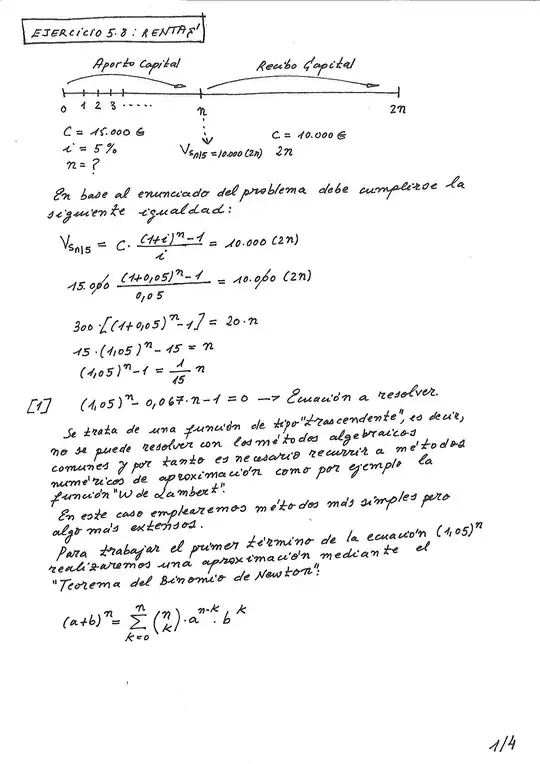 EJERCICIO 5.8: RENTAS
Aporto Capital Recibo Capital
0 1 2 3 ..... n 2n
C = 15.000 € C = 10.000 €
i = 5% Vsn|5 = 10.000 (2n) 2n
n = ?
En base al enunciado del problema debe cumplirse la
siguiente igualdad:
Vsn|5 = C · (1+i)^n - 1 / i = 10.000 (2n)
15.000 (1+0,05)^n - 1 / 0,05 = 10.000 (2n)
300 · [(1+0,05)^n - 1] = 20 · n
15 · (1,05)^n - 15 = n
(1,05)^n - 1 = 1/15 n
[1] (1,05)^n - 0,067 · n - 1 = 0 → Ecuación a resolver.
Se trata de una función de tipo "trascendente", es decir,
no se puede resolver con los métodos algebraicos
comunes y por tanto es necesario recurrir a métodos
numéricos de aproximación como por ejemplo la
función "W de Lambert".
En este caso emplearemos métodos más simples pero
algo más extensos.
Para trabajar el primer término de la ecuación (1,05)^n
realizaremos una aproximación mediante el
"Teorema del Binomio de Newton":
(a+b)^n = n ∑ k=0 (n k) · a^n-k · b^k
1/4